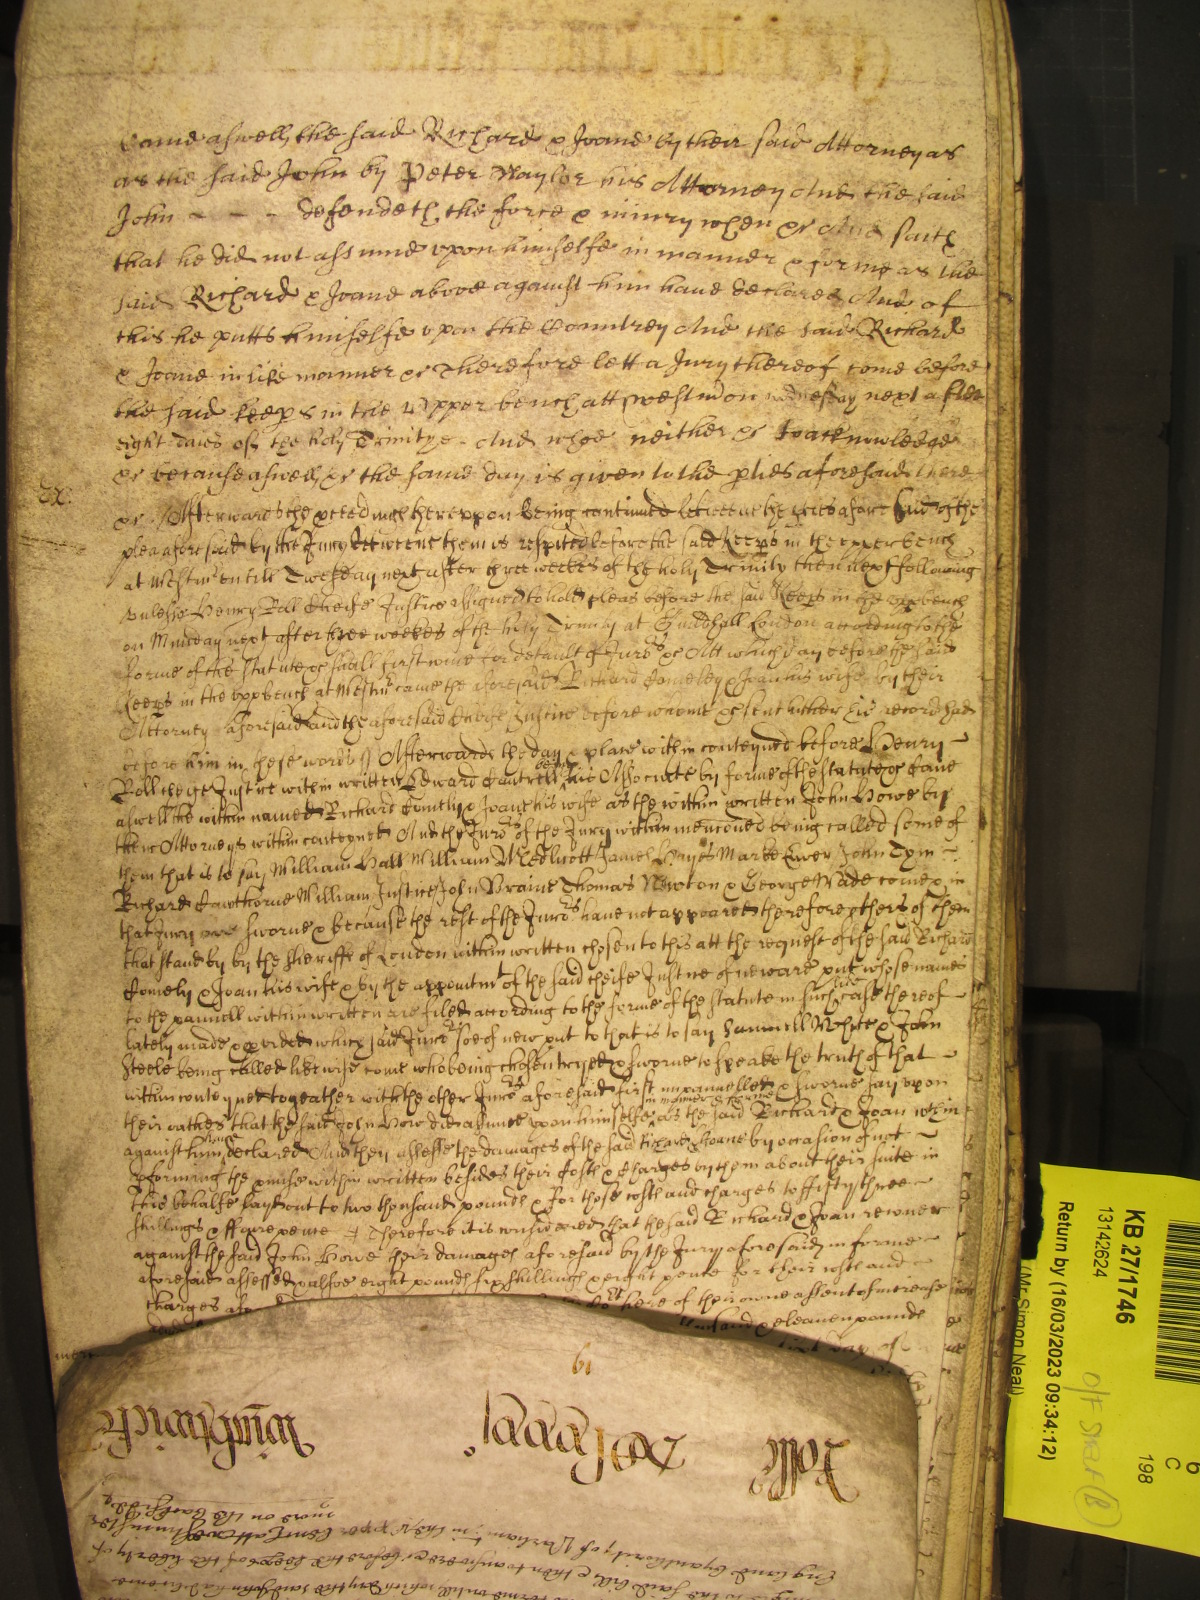 Came aswell the said Richard & Joane by their said Attorney as
as the said John by Peter Naylor his Attorney And the said
John - - - defendeth the force & iniury when &c And saith
that he did not assume upon himselfe in manner & forme as the
said Richard & Joane above against him have declared And of
this he putts himselfe upon the Countrey And the said Richard
& Joane in like manner &c Therefore lett a Jury thereof come before
the said keeps in the Upper bench att westmon wednesday next after
eight daies of the holy Trinitye - And whoe neither &c to acknowledge
&c because aswell &c the same day is given to the pties aforesaid there
Ex:
&c Afterwards the pceedings hereupon being continued betweene the pties aforesaid of the
plea aforesaid by the Jury betweene them is respited before the said keeps in the upper bench
at Westmr untill Twesday next after three weekes of the holy Trinity then next following
unlesse Henry Roll Cheife Justice assigned to hold pleas before the said keeps in the uppbench
on Munday next after three weekes of the holy Trinity at Guildhall London according to the
forme of the statute &c shall first come for default of Jurors &c Att which day before the said
keeps in the uppbench at Westmr came the aforesaid Richard Comely & Joan his wife by their
Attorney aforesaid and the aforesaid Cheife Justice before whome &c sent hither his record had
before him in these words Afterwards the day & place within conteyned before Henry
Roll cheife Justice within written Edward Cantrell being his Associate by forme of the statute &c Came
aswell the within named Richard Comely & Joane his wife as the within written John Howe by
their Attorneys within conteyned And the Jurors of the Jury within menconed being called some of
them that is to say William Hall William Medlicott James Hayes Marke Ewer John Tym
Richard Cawthorne William Justice John Braine Thomas Newton & George Wade come & in
that Jury are sworne & because the rest of the Jurors have not appeared therefore others of them
that stand by by the sheriffs of London within written chosen to this att the request of the said Richard
Comely & Joan his wife & by the appointmt of the said cheife Justice of new are put whose names
to the pannell within written are filed according to the forme of the statute in such like case thereof
lately made & pvided which said Jurors soe of new put to that is to say Samuell White & John
Steele being called likewise come who being chosen tryed & sworne to speake the truth of that
within conteyned togeather with the other Jurors aforesaid first impannelled & sworne say upon
their oathes that the said John How did assume upon himselfe in manner & forme as the said Richard & Joan within
against him have declared And they assesse the damages of the said Richard & Joane by occasion of not
pforming the pmises within written besides their Costs & Charges by them about their suite in
this behalfe layd out to two thousand pounds & for those costs and charges to fifty three
shillings & ffoure pence Therefore it is considered that the said Richard & Joan recover
against the said John Howe their damages aforesaid by the Jury aforesaid in forme
aforesaid assessed & alsoe eight pounds six shillings & eight pence for their costs and
charges here of their owne assent of increase
thousand & eleaven pounds
day of
19
Rolle
England by authority of Parliamt in the upper bench att Westminster
more on the backside
KB 27/1746
13142624
Return by (16/03/2023 09:34:12)
(Mr Simon Neal)
198
6
C
O/F Shelf (B)